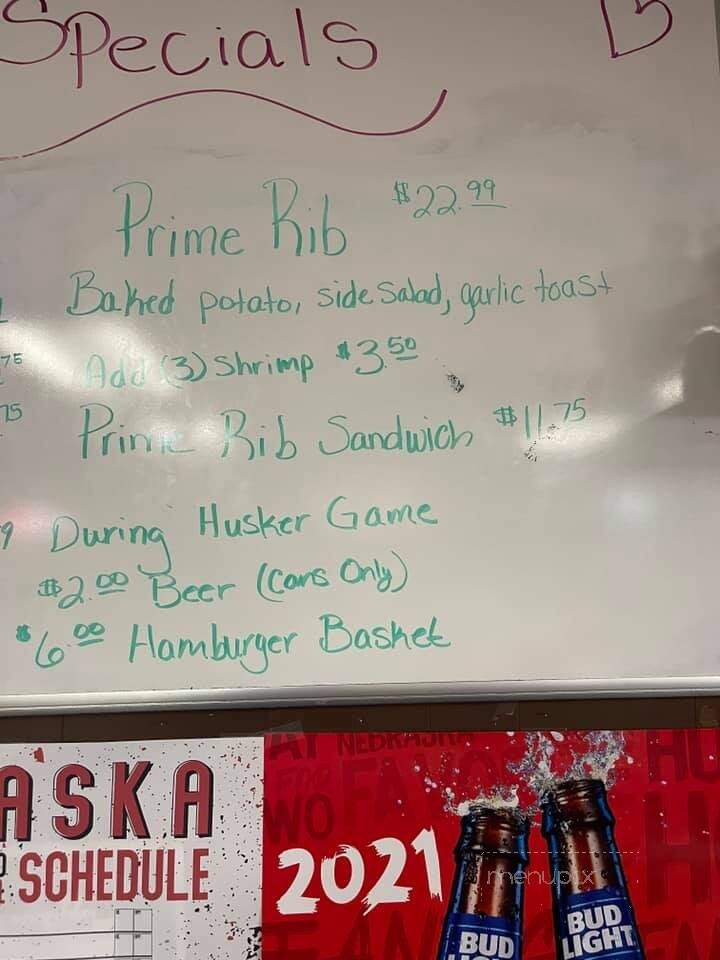 Specials
Prime Rib $22.99
Baked potato, side salad, garlic toast
75 Add (3) Shrimp $3.50
75 Prime Rib Sandwich $11.75
9 During Husker Game
$2.00 Beer (Cans Only)
$6.00 Hamburger Basket
ASKA
SCHEDULE
NEBRASKA
WO
FAVO
HU
2021
menupix
BUD
LIGHT
BUD
LIGHT